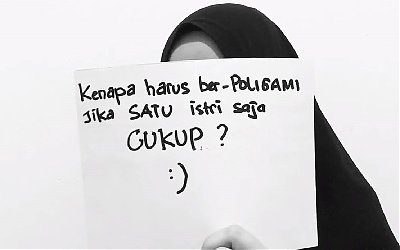 Kenapa harus ber-POLIGAMI
Jika SATU istri saja
CUKUP ?
:)